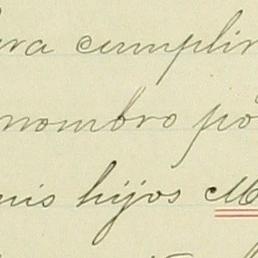 ra cumplir
nombro po
mis hijos M